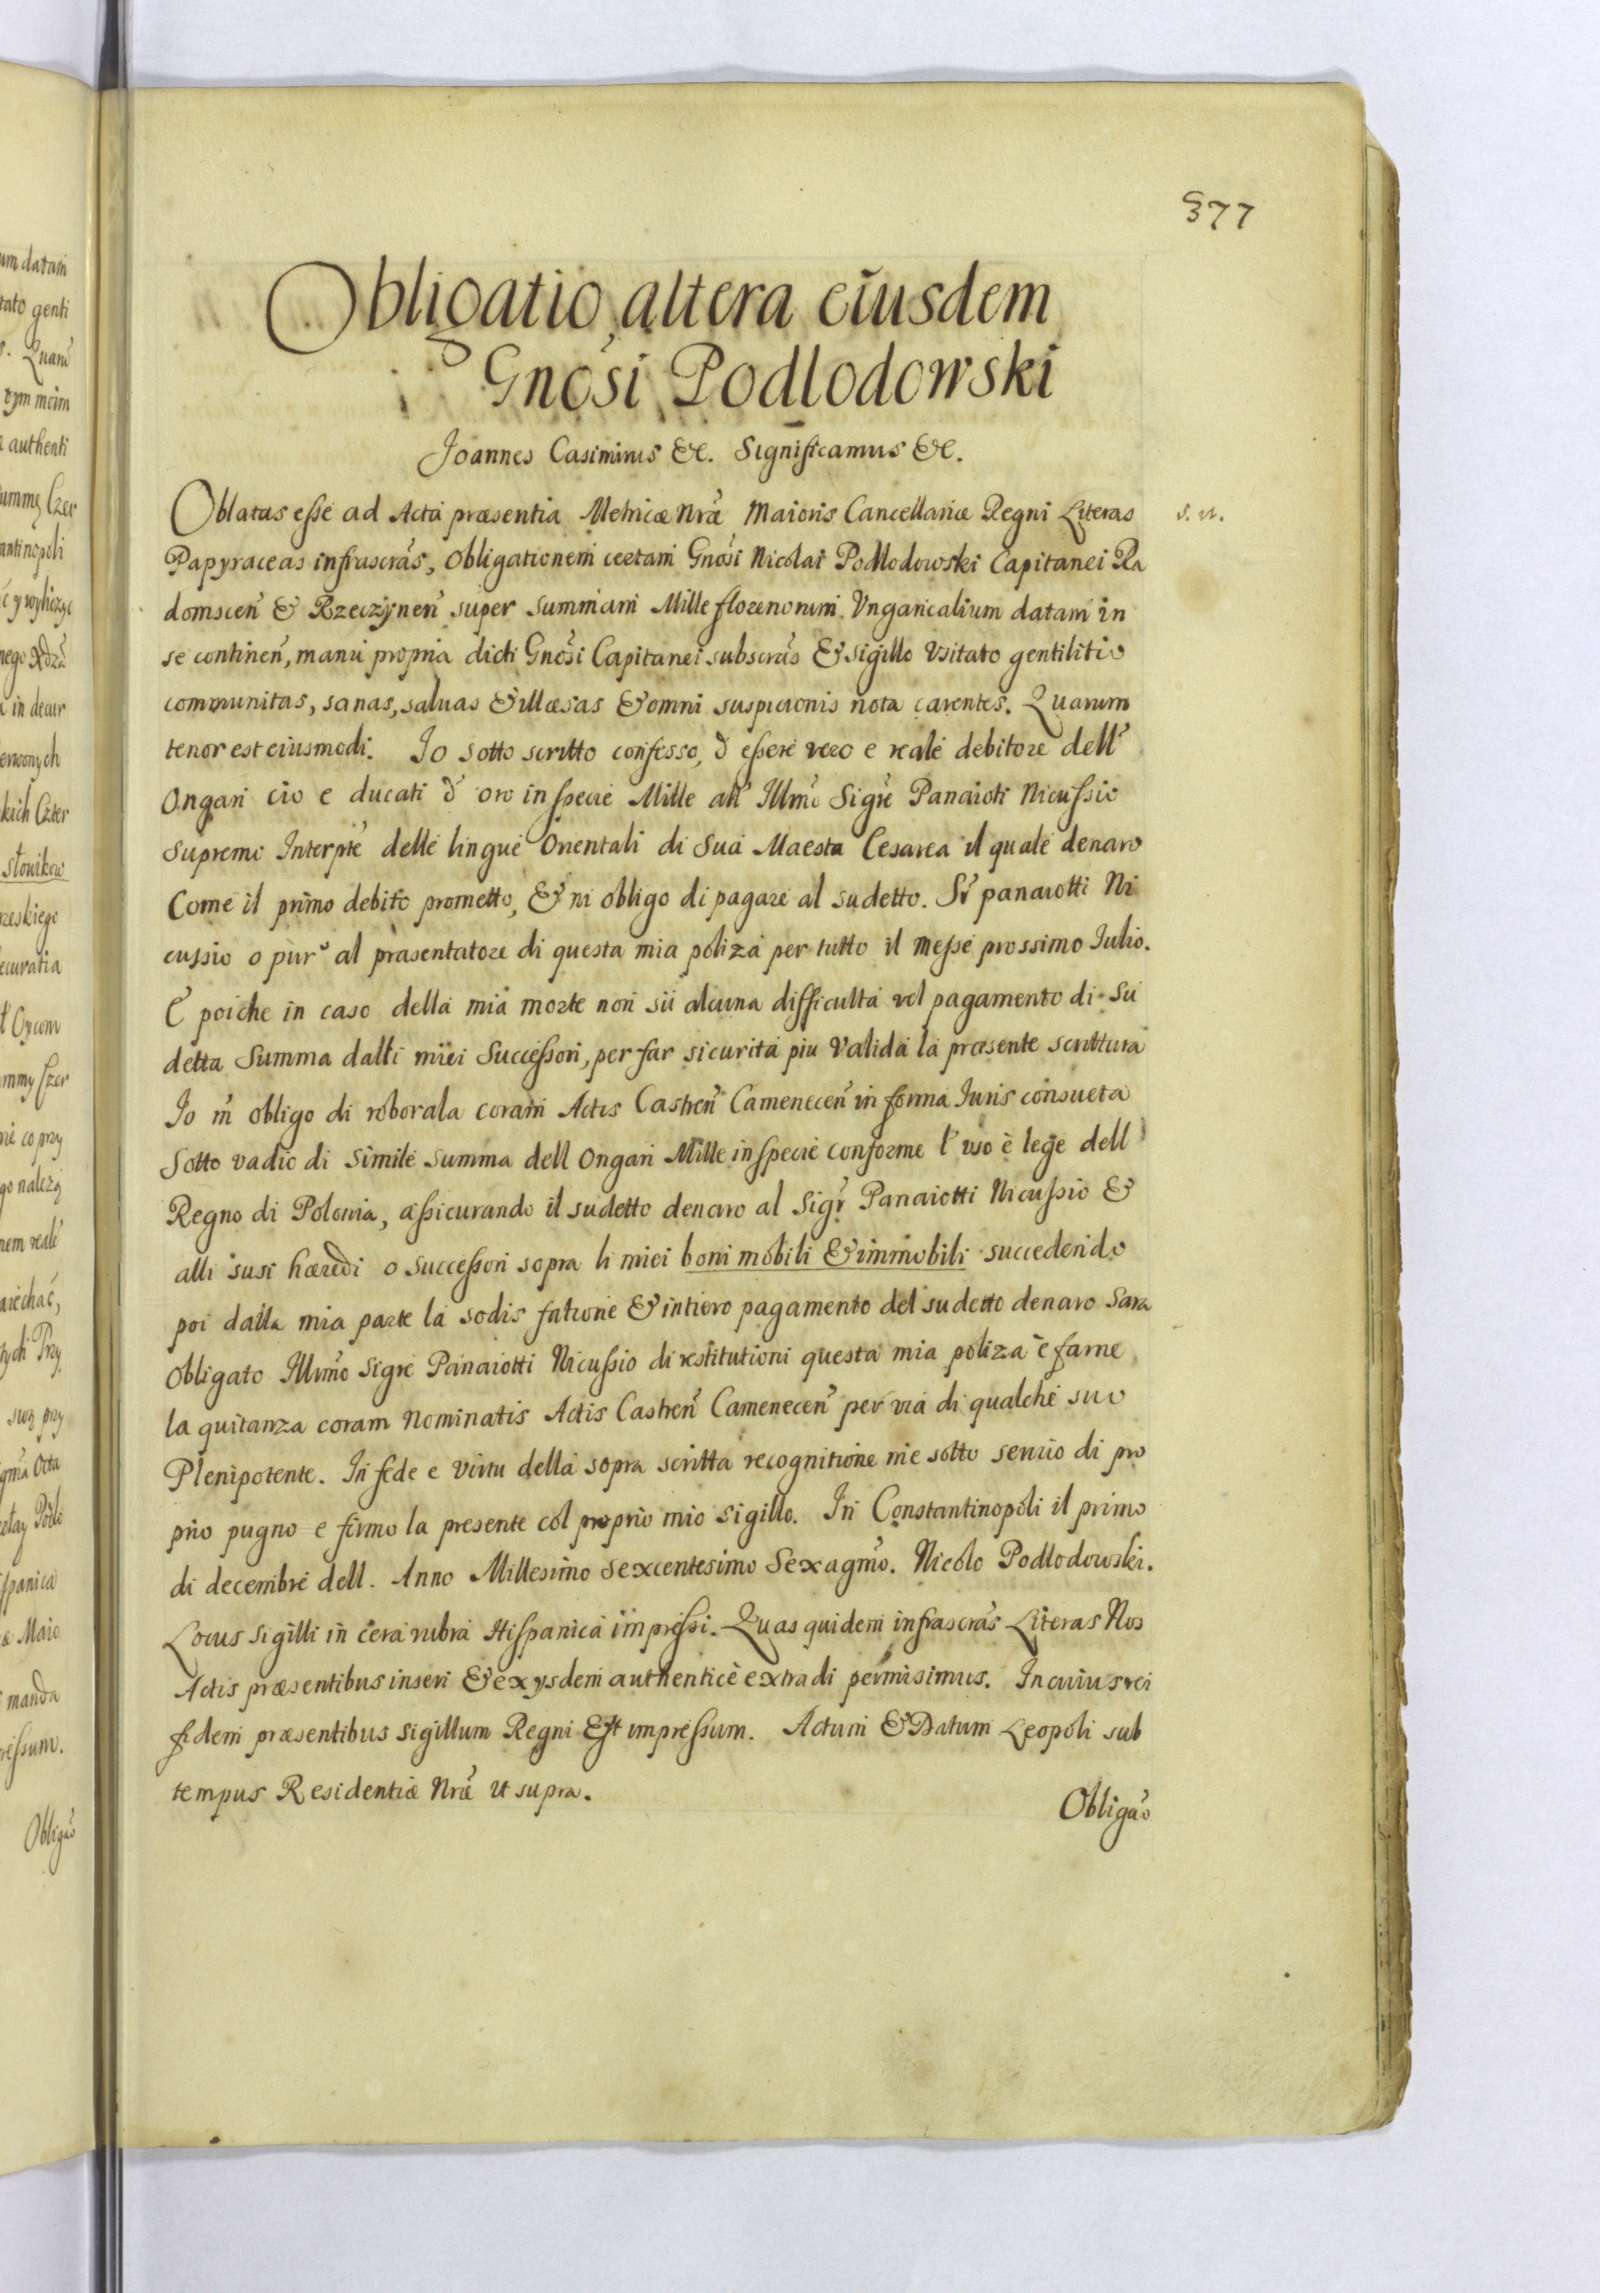 377
Obligatio altera eiusdem
Gnosi Podlodowski
Joannes Casimirus &c. Significamus &c.
Oblatas esse ad Acta præsentia Metricæ Nræ Maioris Cancellariæ Regni Literas
s. n.
Papyraceas infrascras, obligationem certam Gnosi Nicolai Podlodowski Capitanei Ra
domscen & Rzeczynen super summam Mille florenorum Vngaricalium datam in
se continen, manu propria dicti Gnosi Capitanei subscras & sigillo Vsitato gentilitio
communitas, sanas, saluas & illæsas & omni suspicionis nota carentes. Quarum
tenor est eiusmodi. Jo sotto scritto confesso, d' essere vero e reale debitore dell'
Ongari cio e ducati d' oro in specie Mille all' Illmo Sigre Panaioti Nicussio
Supremo Interpte delle lingue Orientali di Sua Maesta Cesarea il quale denaro
Come il primo debito prometto, & mi obligo di pagare al sudetto. Sr panaiotti Ni
cussio o pur' al præsentatore di questa mia poliza per tutto il messe prossimo Julio.
E poiche in caso della mia morte non sii alcuna difficulta vel pagamento di su
detta Summa dalli miei Successori, per far sicurita piu valida la præsente scrittura
Jo m' obligo di roborala coram Actis Castren Camenecen in forma Juris consueta
Sotto vadio di simile summa dell Ongari Mille in specie conforme l' vso è lege dell
Regno di Polonia, assicurando il sudetto denaro al Sigr Panaiotti Nicussio &
alli susi hæredi o successori sopra li miei boni mobili & immobili succedendo
poi dalla mia parte la sodis fatione & intiero pagamento del sudetto denaro Sara
obligato Illmo Sigre Panaiotti Nicussio di restitutioni questa mia poliza è farne
la quitanza coram Nominatis Actis Castren Camenecen per via di qualche suo
Plenipotente. In fede e virtu della sopra scritta recognitione me sotto scrivo di pro
prio pugno e firmo la presente col proprio mio sigillo. In Constantinopoli il primo
di decembre dell. Anno Millesimo Sexcentesimo Sexagmo. Nicolo Podlodowski.
Locus Sigilli in cera rubra Hispanica impressi. Quas quidem infrascras Literas Nos
Actis præsentibus inseri & ex ysdem authenticè extradi permisimus. In cuius rei
fidem præsentibus sigillum Regni Est impressum. Actum & Datum Leopoli sub
tempus Residentiæ Nræ ut supra.
Obligao